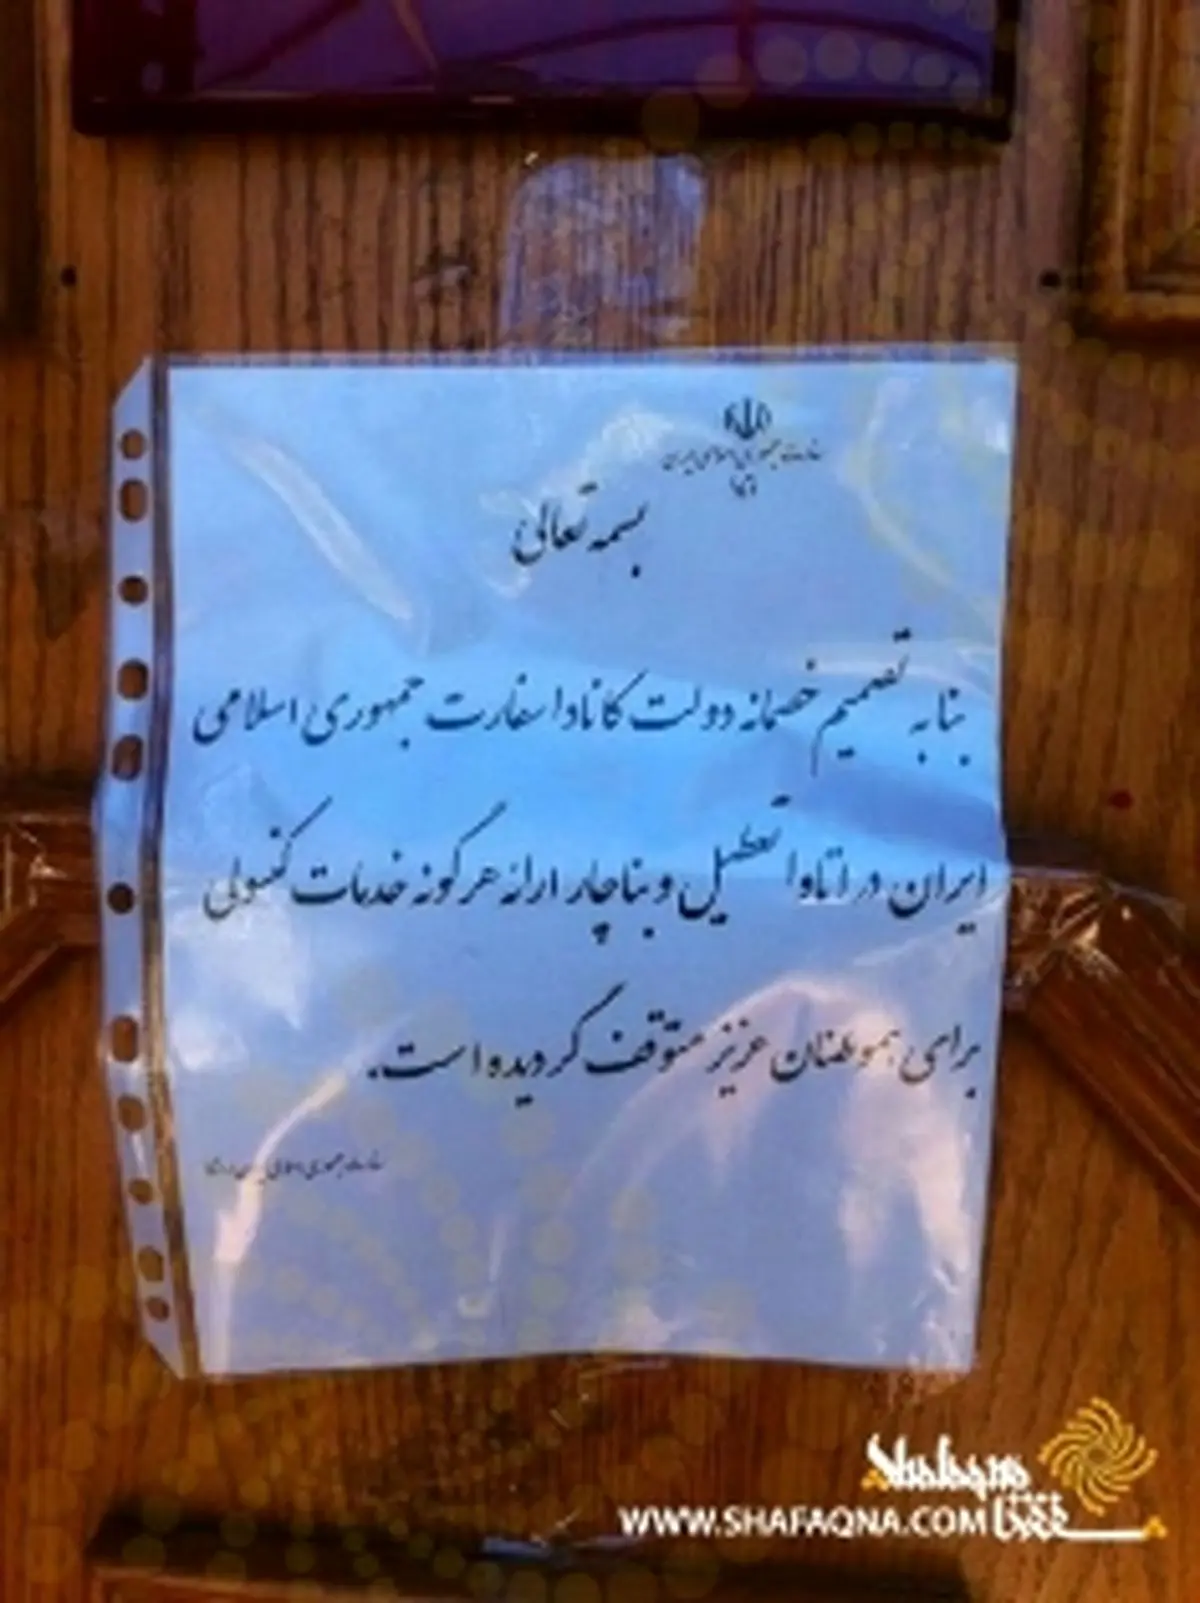 سفارت جمهوری اسلامی ایران
اتاوا
بسمه تعالی
بنا به تصمیم خصمانه دولت کانادا سفارت جمهوری اسلامی
ایران در اتاوا تعطیل و بناچار ارائه هرگونه خدمات کنسولی
برای هموطنان عزیز متوقف گردیده است.
سفارت جمهوری اسلامی ایران - اتاوا
شفقنا
WWW.SHAFAQNA.COM